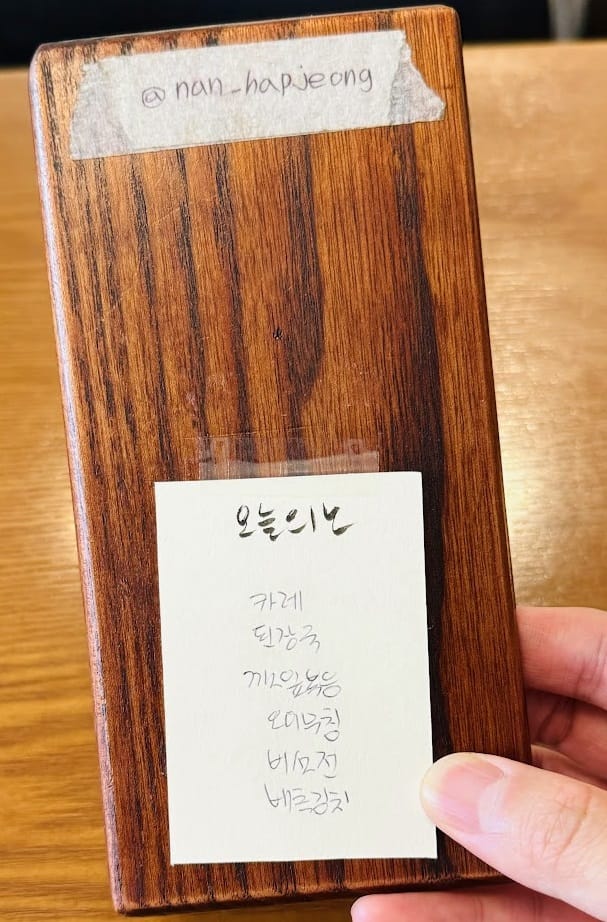 @nan_hapjeong
오늘의 난
카레
된장국
깻잎볶음
오이무침
버섯전
배추김치